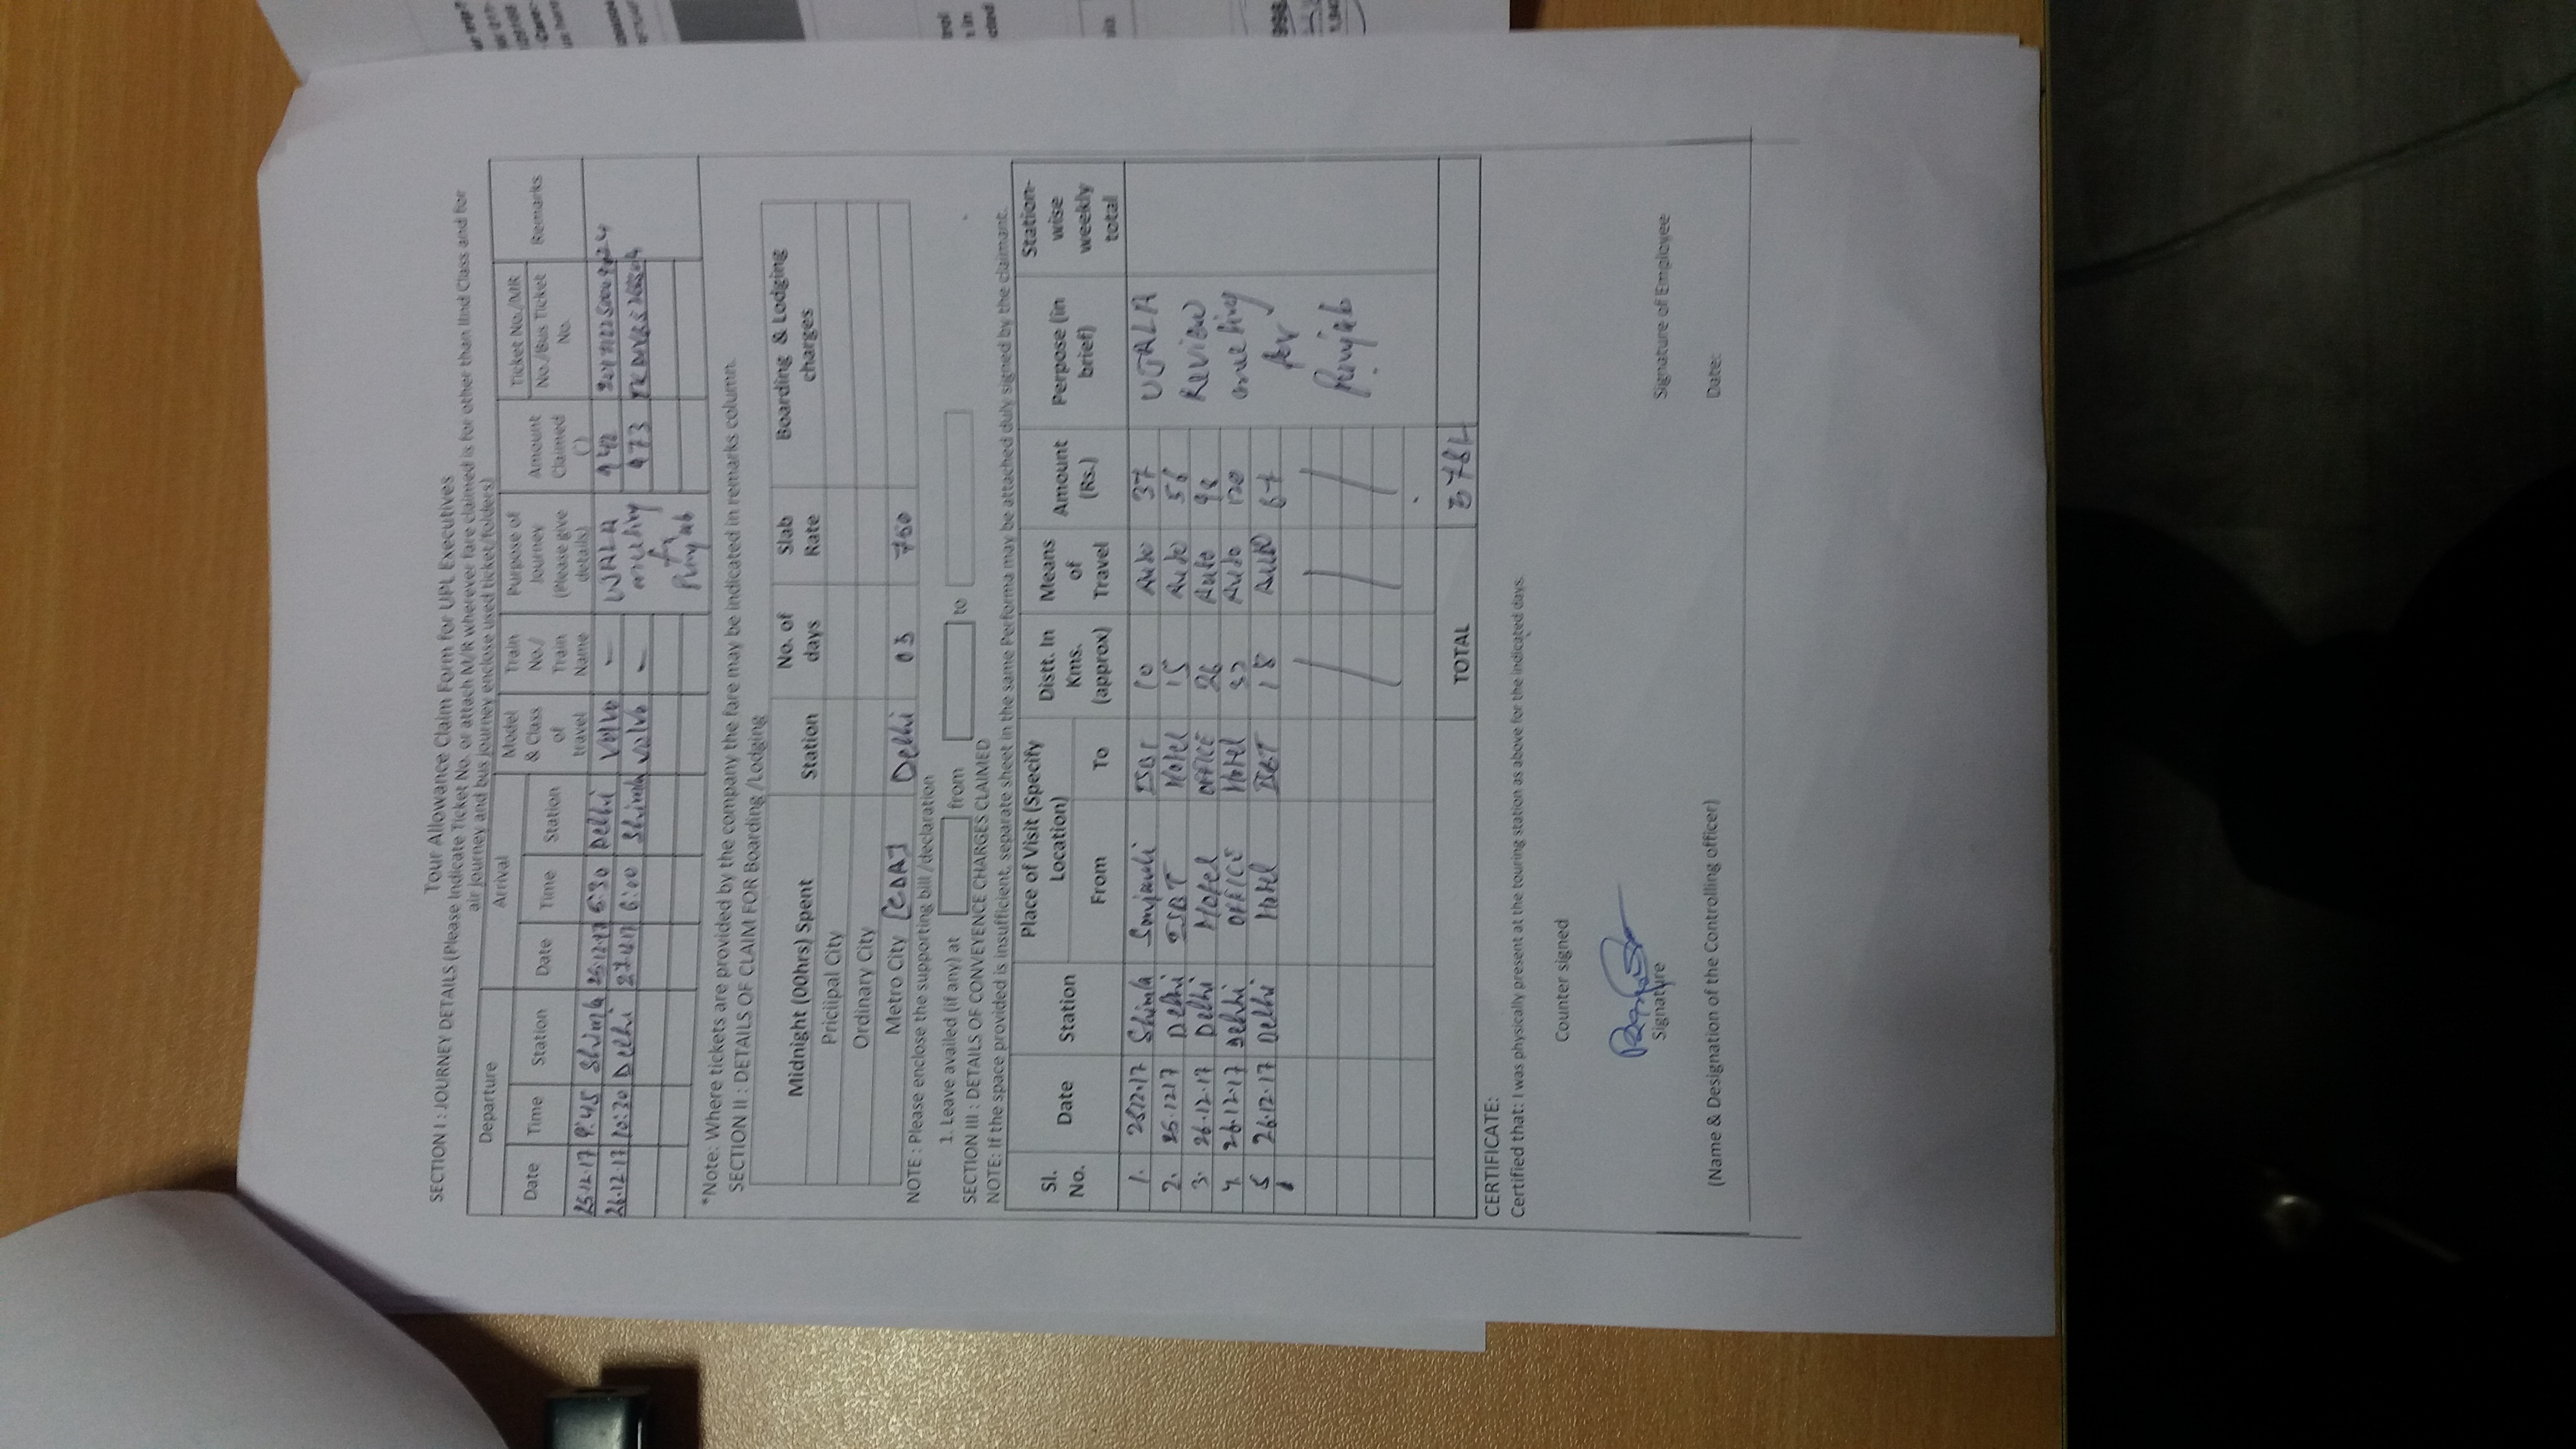 Tour Allowance Claim Form for UPL Executives
SECTION I : JOURNEY DETAILS (Please Indicate Ticket No. or attach M/R wherever fare claimed is for other than IInd Class and for
air journey and bus journey enclose used ticket/folders)
Departure Arrival Model & Class of travel Train No./ Train Name Purpose of Journey (Please give details) Amount Claimed (`) Ticket No./MR No./Bus Ticket No. Remarks
Date Time Station Date Time Station
25.12.17 9:45 Shimla 25.12.17 5:30 Delhi Volvo - UJALA 942
26.12.17 10:30 Delhi 6:00 Shimla Volvo - meeting 973
for
Punjab
*Note: Where tickets are provided by the company the fare may be indicated in remarks column.
SECTION II : DETAILS OF CLAIM FOR Boarding /Lodging
Midnight (00hrs) Spent Station No. of days Slab Rate Boarding & Lodging charges
Priciipal City
Ordinary City
Metro City [CDA] Delhi 03 750
NOTE : Please enclose the supporting bill /declaration
1. Leave availed (if any) at from to
SECTION III : DETAILS OF CONVEYENCE CHARGES CLAIMED
NOTE: If the space provided is insufficient, separate sheet in the same Performa may be attached duly signed by the claimant.
Sl. No. Date Station Place of Visit (Specify Location) Distt. In Kms. (approx) Means of Travel Amount (Rs.) Perpose (in brief) Station-wise weekly total
From To
1. 25.12.17 Shimla Sanjauli ISBT 10 Auto 37 UJALA
2. 25.12.17 Delhi ISBT Hotel 15 Auto 56
3. 26.12.17 Delhi Hotel OFFICE 26 Auto 98 Review
4. 26.12.17 Delhi OFFICE Hotel 32 Auto 120 meeting
5 26.12.17 Delhi Hotel ISBT 18 Auto 67 for
Punjab
TOTAL
CERTIFICATE:
Certified that: I was physically present at the touring station as above for the indicated days.
Counter signed
Signature
Signature of Employee
(Name & Designation of the Controlling officer)
Date: